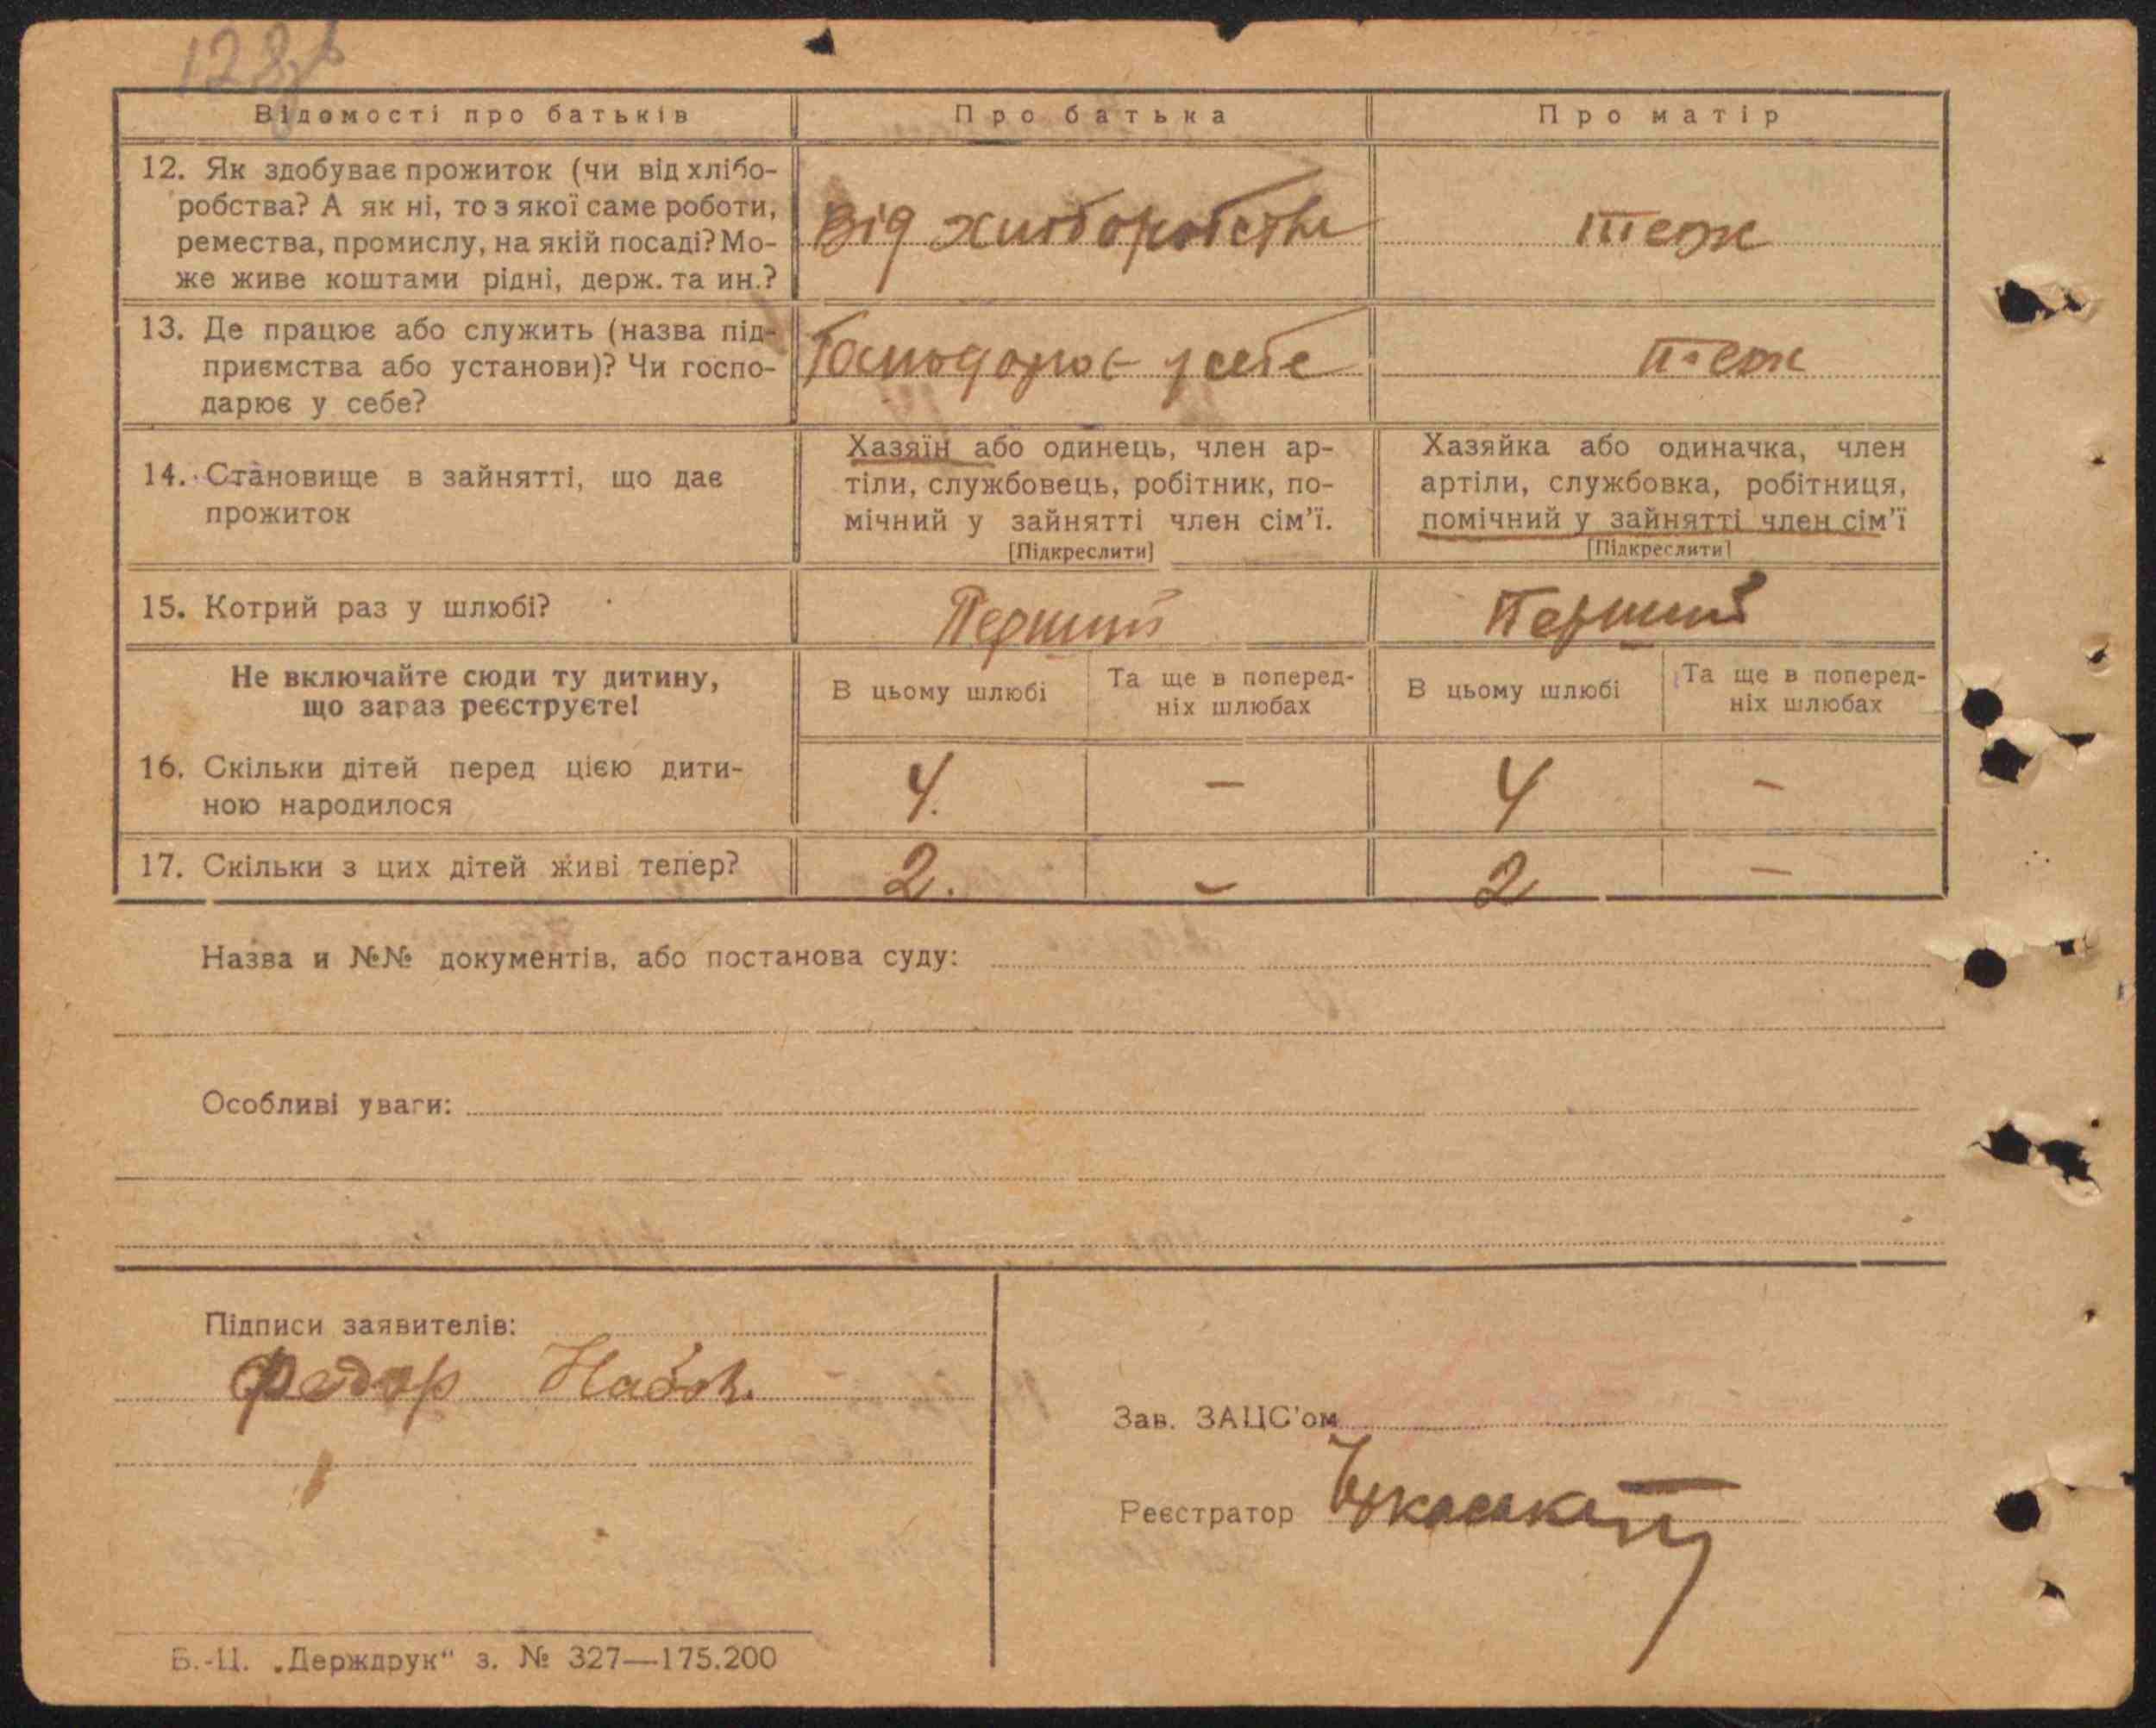 Відомості про батьків
Про батька
Про матір
12. Як здобуває прожиток (чи від хлібо-
робства? А як ні, то з якої саме роботи,
ремества, промислу, на якій посаді? Мо-
же живе коштами рідні, держ. та ин.?
Від хліборобства
теж
13. Де працює або служить (назва під-
приємства або установи)? Чи госпо-
дарює у себе?
Господарює у себе
теж
14. Становище в зайнятті, що дає
прожиток
Хазяїн або одинець, член ар-
тіли, службовець, робітник, по-
мічний у зайнятті член сім'ї.
[Підкреслити]
Хазяйка або одиначка, член
артіли, службовка, робітниця,
помічний у зайнятті член сім'ї
[Підкреслити]
15. Котрий раз у шлюбі?
Перший
Перший
Не включайте сюди ту дитину,
що зараз реєструєте!
В цьому шлюбі
Та ще в поперед-
ніх шлюбах
В цьому шлюбі
Та ще в поперед-
ніх шлюбах
16. Скільки дітей перед цією дити-
ною народилося
4. – 4 –
17. Скільки з цих дітей живі тепер?
2. – 2 –
Назва и №№ документів, або постанова суду:
Особливі уваги:
Підписи заявителів:
Федор
Зав. ЗАЦС'ом
Реєстратор
Б.-Ц. „Держдрук“ з. № 327—175.200